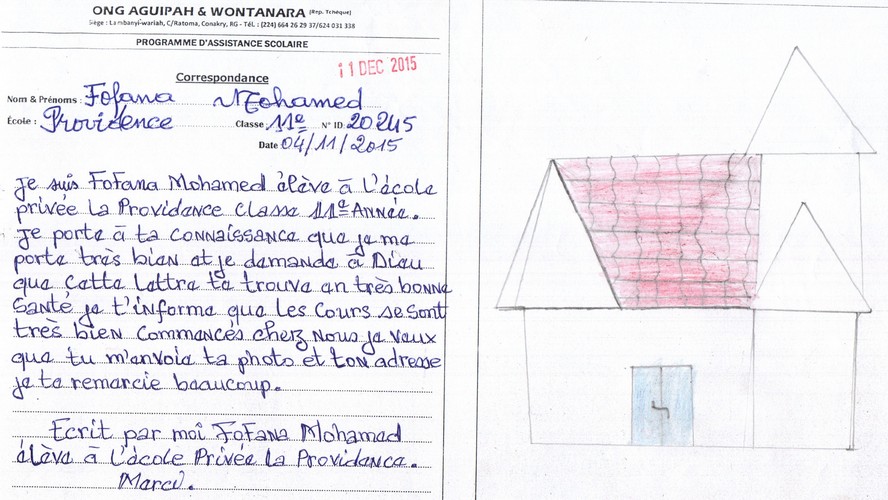 ONG AGUIPAH & WONTANARA (Rep. Tchèque)
Siège : Lambanyi-wariah, C/Ratoma, Conakry, RG - Tél. : (224) 664 26 29 37/624 031 338
PROGRAMME D'ASSISTANCE SCOLAIRE
11 DEC 2015
Correspondance
Nom & Prénoms : Fofana Mohamed
École : Providence Classe 11e N° ID 20245
Date 04/11/2015
Je suis Fofana Mohamed élève à l'école
privée la Providence classe 11e Année.
Je porte à ta connaissance que je me
porte très bien et je demande à Dieu
que cette lettre te trouve en très bonne
Santé je t'informe que les cours se sont
très bien commencés cherz nous je veux
que tu m'envoie ta photo et ton adresse
je te remercie beaucoup.
Ecrit par moi Fofana Mohamed
élève à l'école Privée la Providence.
Merci.